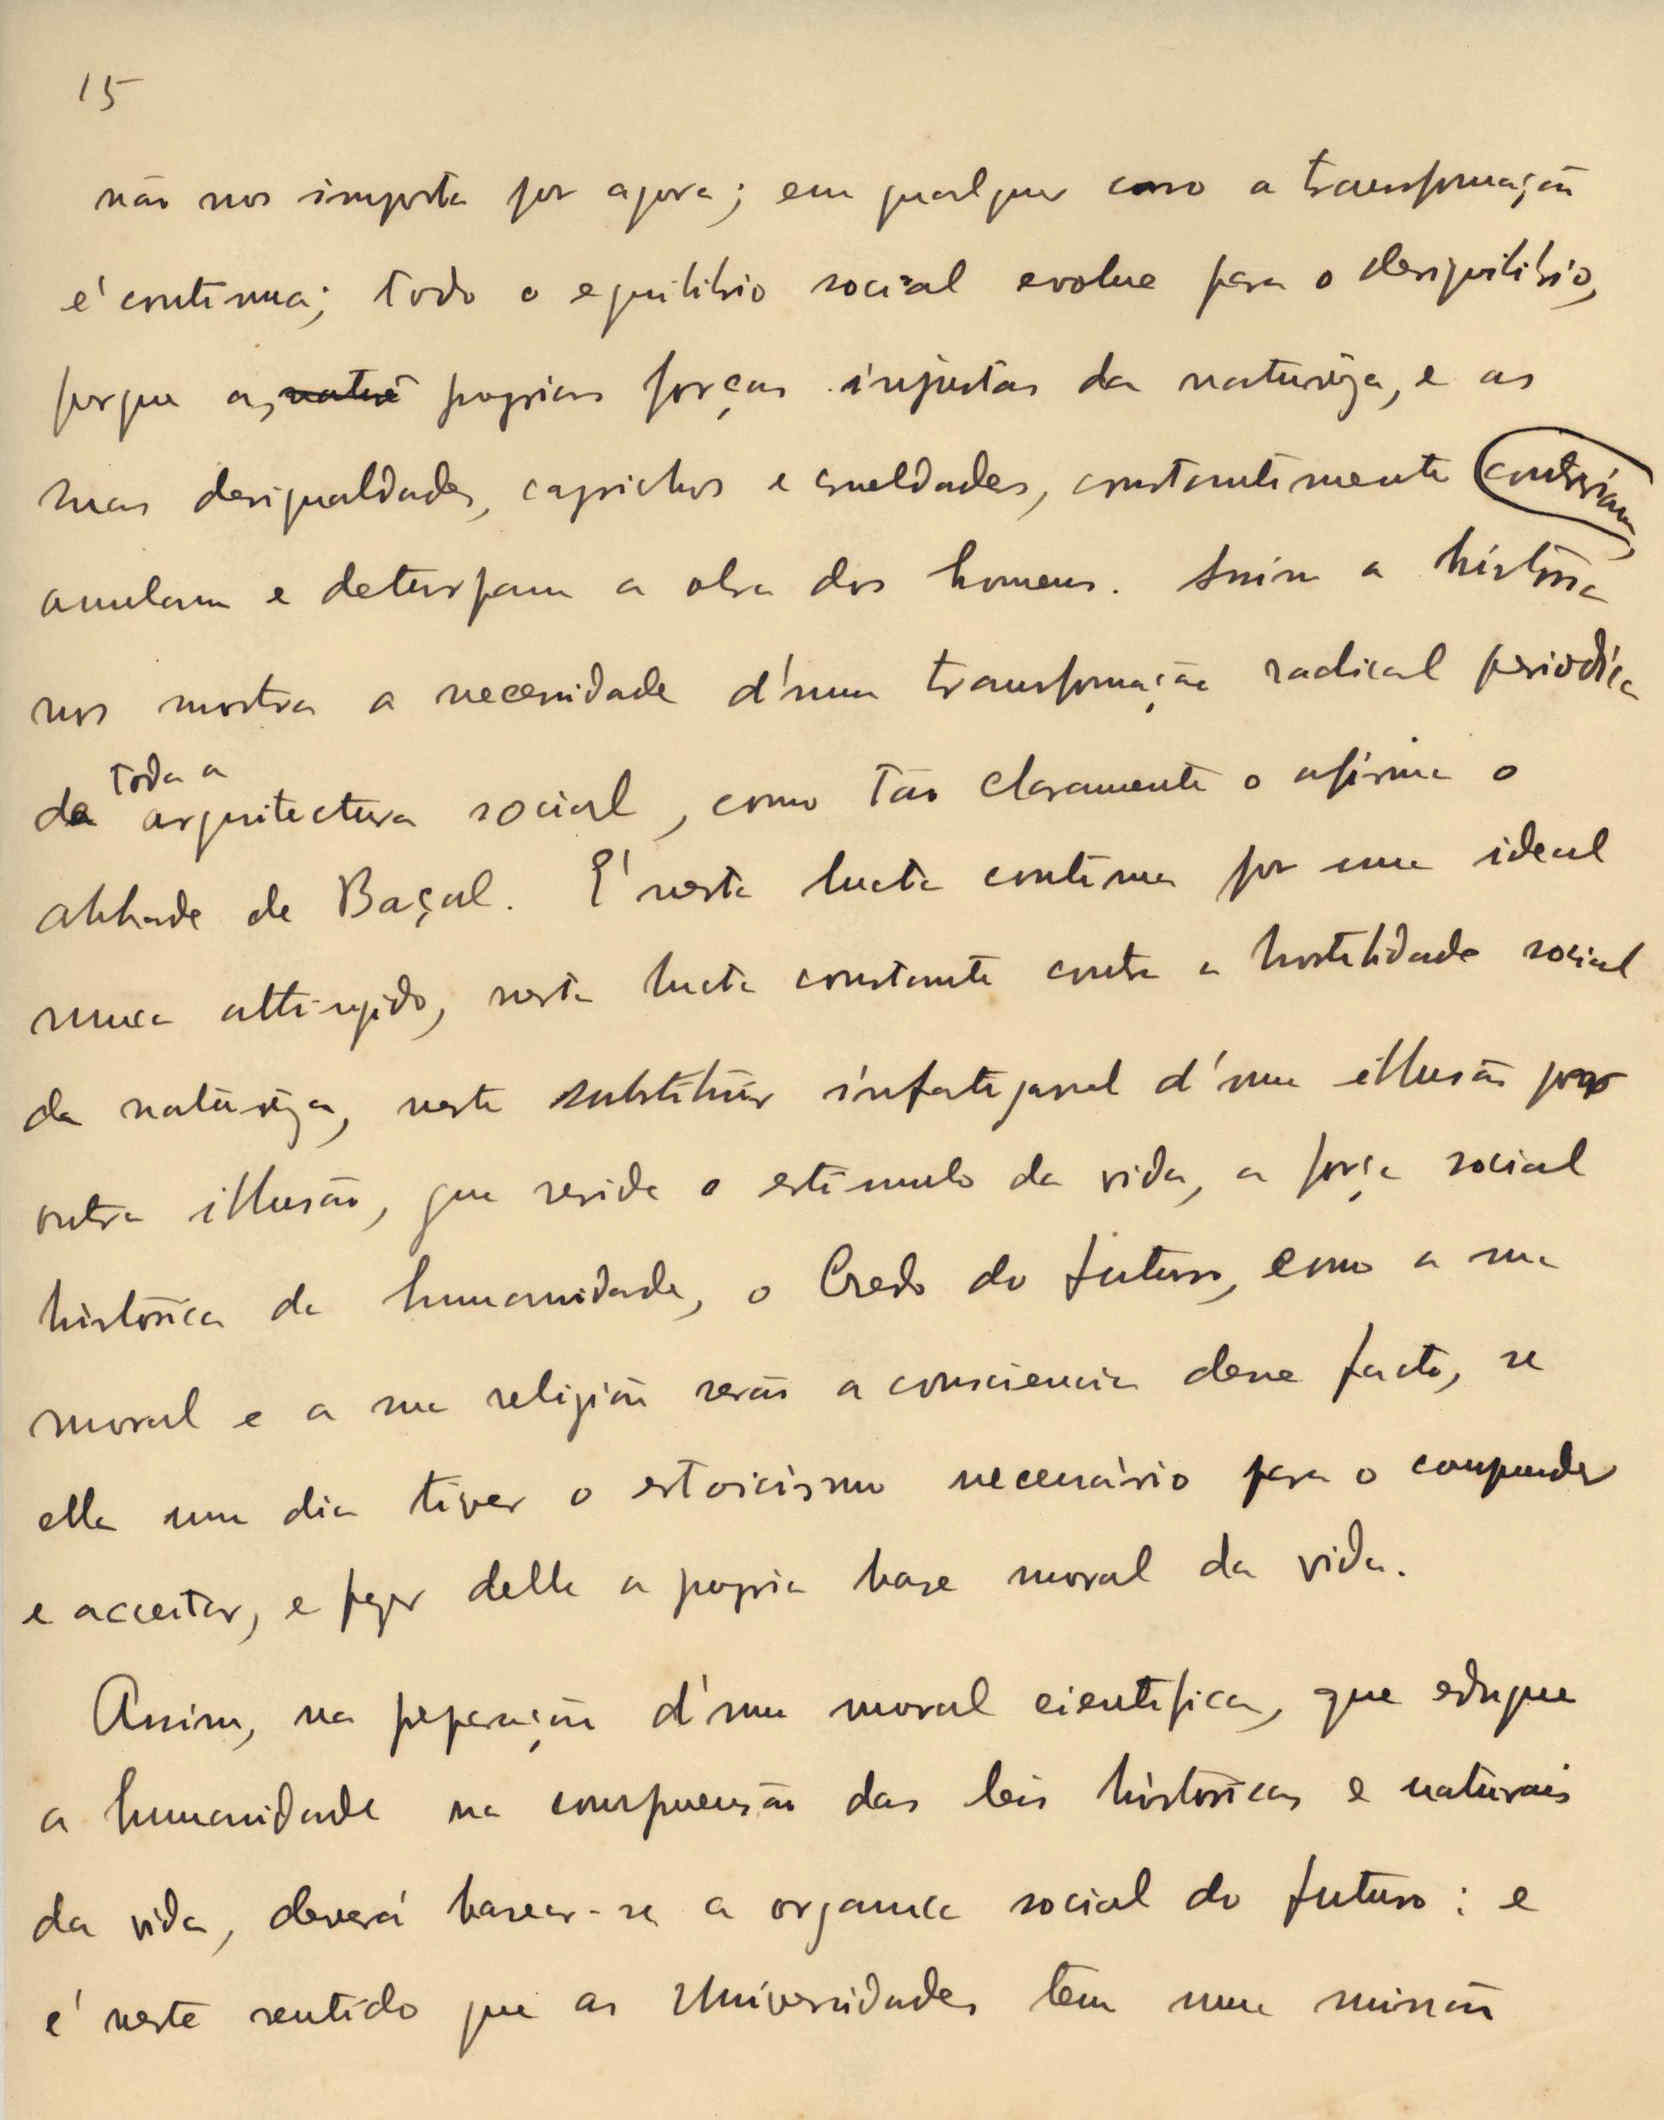 15
não nos importa por agora; em qualquer caso a transformação
é continua; todo o equilibrio social evolue para o desiquilibrio,
porque as proprias forças injustas da naturêza, e as
suas desigualdades, caprichos e crueldades, constantemente contrariam,
anulam e deturpam a obra dos homens. Assim a história
nos mostra a necessidade d'uma transformação radical periodica
de toda a arquitectura social, como tão claramente o afirma o
abbade de Baçal. É nesta lucta continua por um ideal
nunca attingido, nesta lucta constante contra a hostilidade social
da naturêza, neste substituir infatigavel d'uma illusão por
outra illusão, que reside o estimulo da vida, a força social
histórica da humanidade, o Credo do futuro, como a sua
moral e a sua religião serão a consciencia desse facto, se
ella um dia tiver o estoicismo necessário para o comprender
e acceitar, e fazer delle a propria base moral da vida.
Assim, na preparação d'uma moral cientifica, que eduque
a humanidade na comprensão das leis históricas e naturais
da vida, deverá basear-se a organica social do futuro: e
é neste sentido que as Universidades tem uma missão